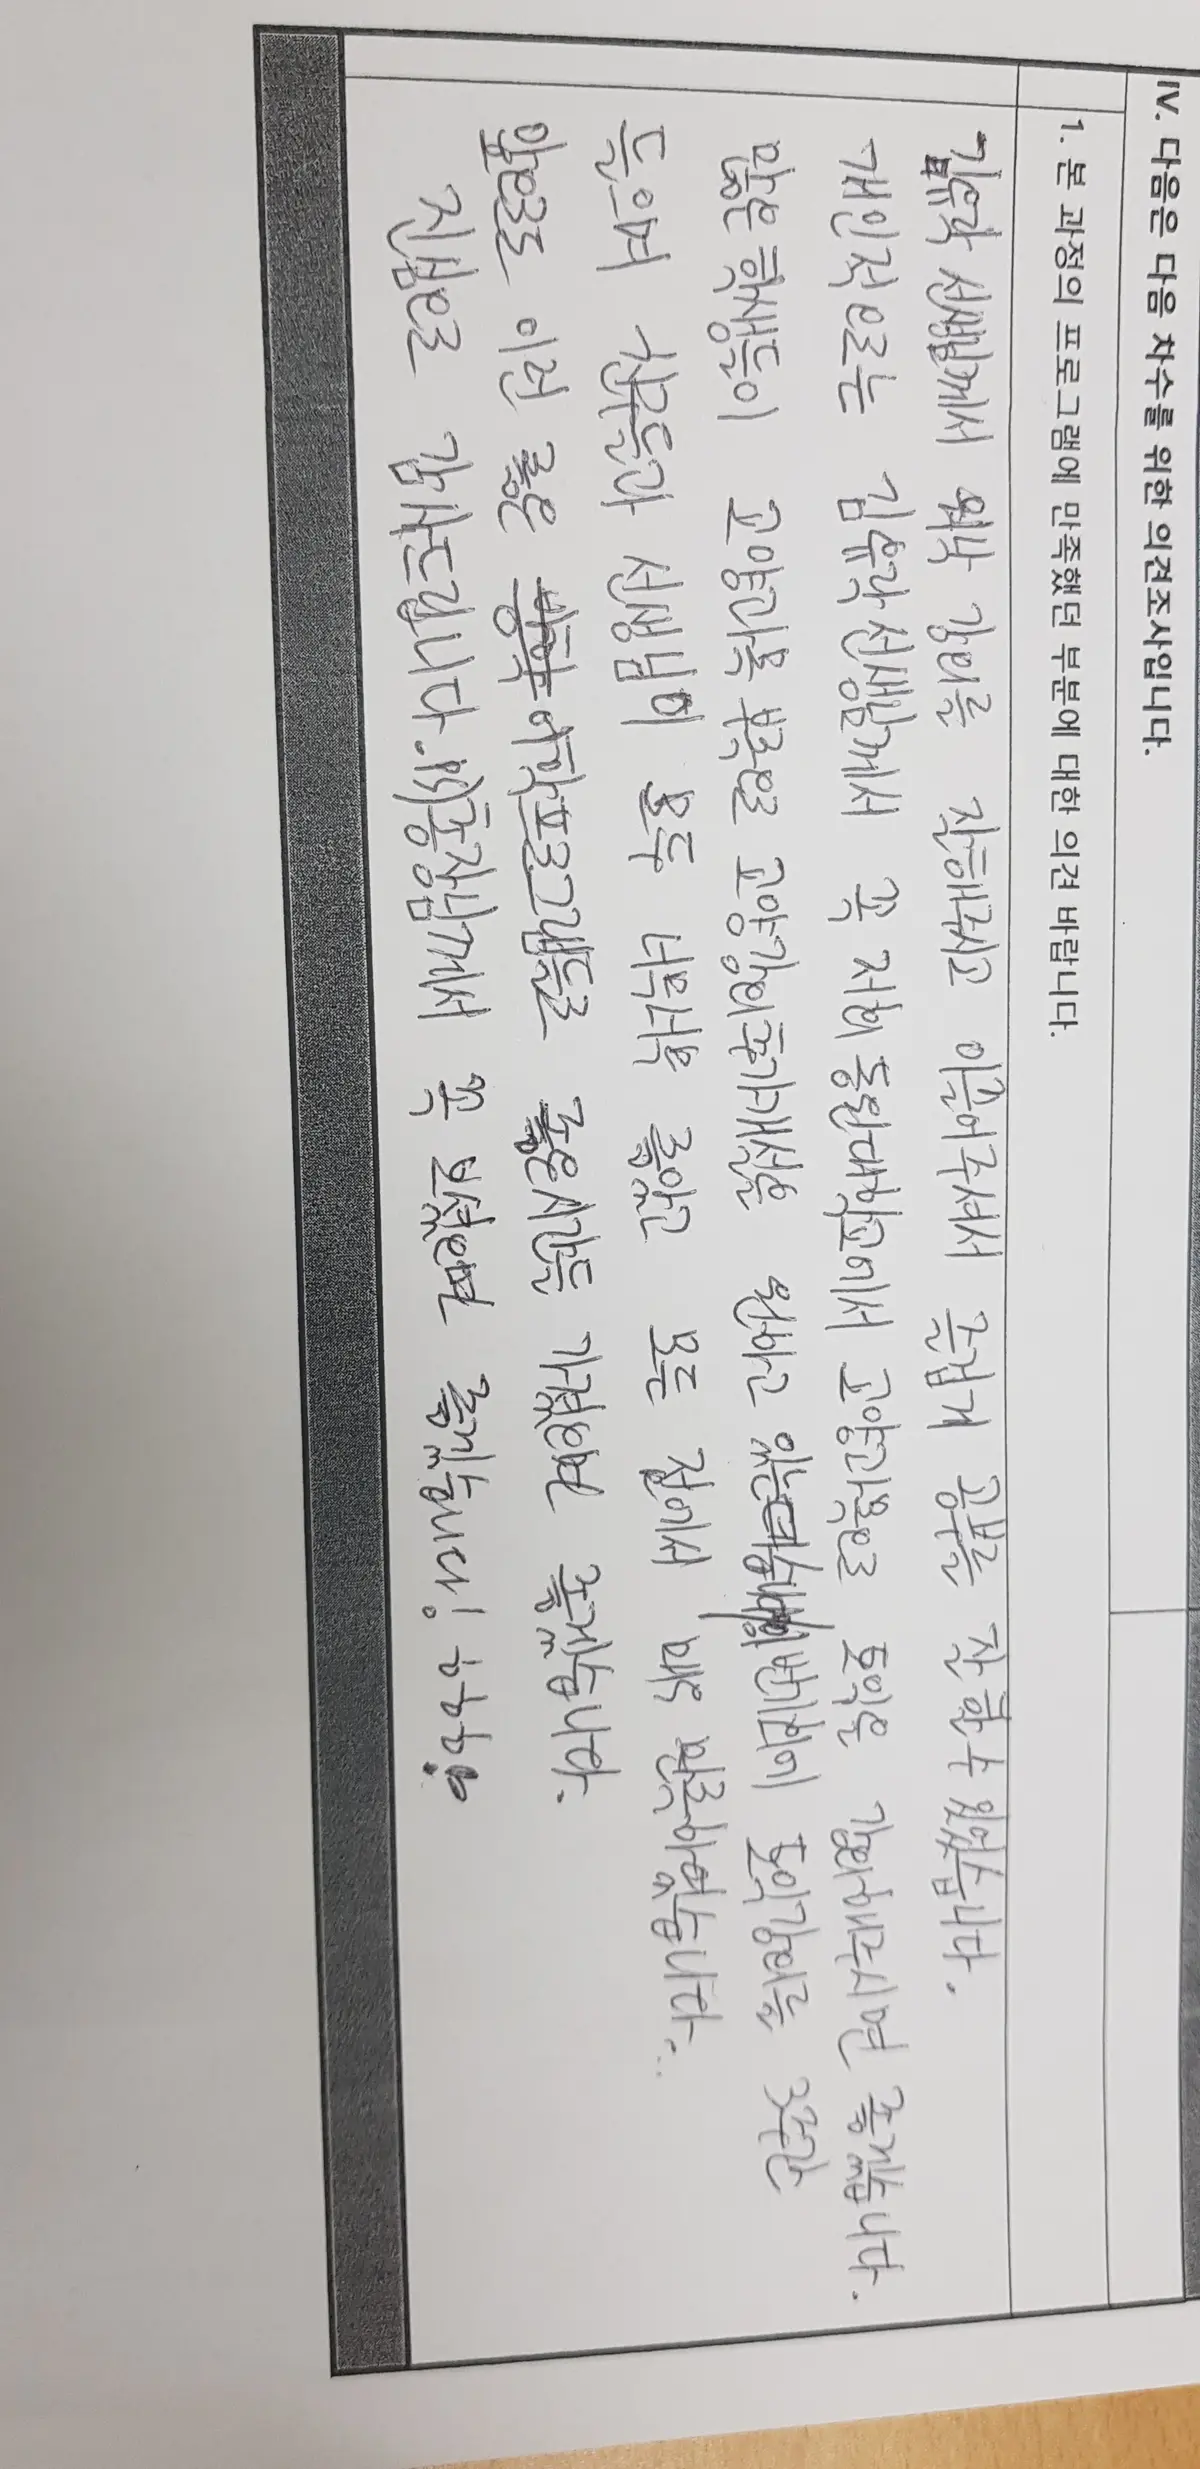 IV. 다음은 다음 차수를 위한 의견조사입니다.
1. 본 과정의 프로그램에 만족했던 부분에 대한 의견 바랍니다.
선생님께서 워낙 강의를 잘해주시고 이끌어주셔서 즐겁게 공부를 잘 할 수 있었습니다.
개인적으로는 선생님께서 꼭 저희 동원대학교에서 교양과목으로 토익을 강의해주시면 좋겠습니다.
많은 학생들이 교양과목 부족으로 교양강의추가개설을 원하고 이번기회에 토익강의를 3주간
들으며 친구들과 선생님이 모두 너무너무 좋았고 모든 점에서 매우 만족하였습니다..
앞으로도 이런 좋은 어학프로그램들로 좋은시간들 가졌으면 좋겠습니다.
진심으로 감사드립니다. PS)총장님께서 꼭 보셨으면 좋겠습니다! ㅎㅎㅎㅎ